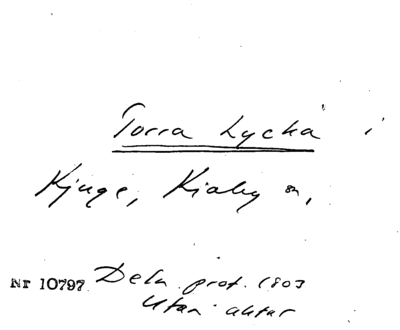 Torra Lycka i
Kjuge, Kiaby sn,
Nr 10797 Deln. prot. 1803
Utan aktur